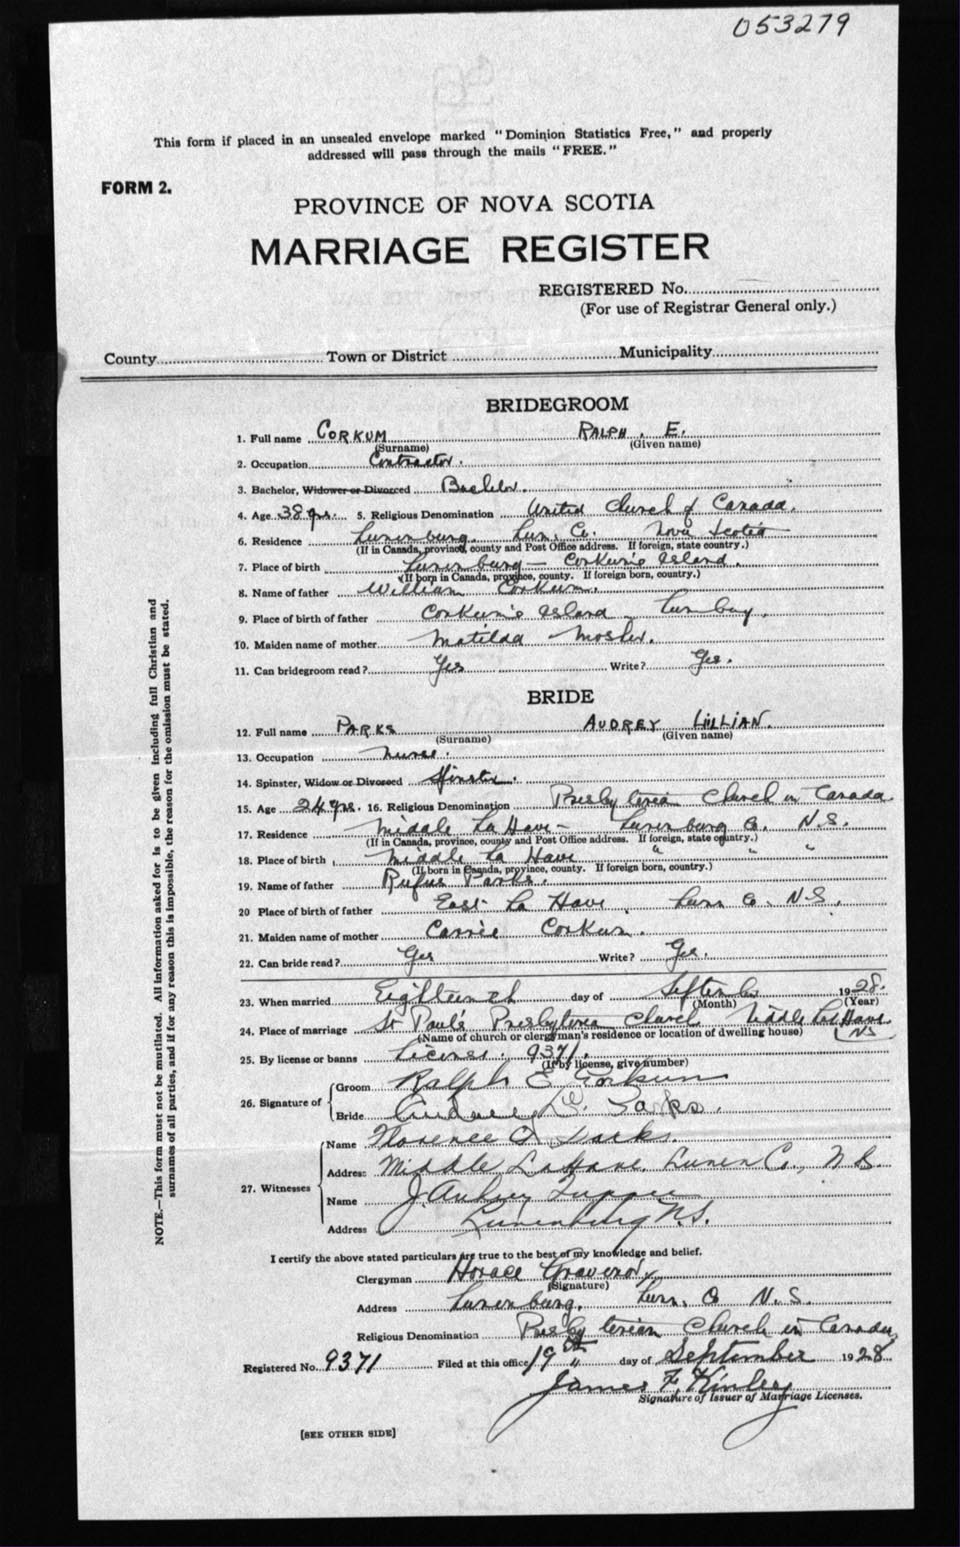 053279
This form if placed in an unsealed envelope marked "Dominion Statistics Free," and properly
addressed will pass through the mails "FREE."
FORM 2.
PROVINCE OF NOVA SCOTIA
MARRIAGE REGISTER
REGISTERED No.
(For use of Registrar General only.)
County Town or District Municipality
BRIDEGROOM
1. Full name CORKUM RALPH. E.
(Surname) (Given name)
2. Occupation Contractor.
3. Bachelor, Widower or Divorced Bachelor.
4. Age 38 yrs. 5. Religious Denomination United Church of Canada.
6. Residence Lunenburg. Lun. Co. Nova Scotia
(If in Canada, province, county and Post Office address. If foreign, state country.)
7. Place of birth Lunenburg - Corkum's Island.
(If born in Canada, province, county. If foreign born, country.)
8. Name of father William Corkum.
9. Place of birth of father Corkum's Island
10. Maiden name of mother Matilda Mosher.
11. Can bridegroom read? Yes Write? Yes.
BRIDE
12. Full name PARKS AUDREY LILLIAN.
(Surname) (Given name)
13. Occupation Nurse.
14. Spinster, Widow or Divorced Spinster.
15. Age 24 yrs. 16. Religious Denomination Presbyterian Church in Canada
17. Residence Middle La Have - Lunenburg Co. N.S.
(If in Canada, province, county and Post Office address. If foreign, state country.)
18. Place of birth Middle La Have " " "
(If born in Canada, province, county. If foreign born, country.)
19. Name of father Rufus Parks.
20 Place of birth of father East La Have, Lun Co. N.S.
21. Maiden name of mother Carrie Corkum.
22. Can bride read? Yes Write? Yes.
23. When married Eighteenth day of September 1928.
(Month) (Year)
24. Place of marriage St Paul's Presbyterian Church Middle La Have NS
(Name of church or clergyman's residence or location of dwelling house)
25. By license or banns License. 9371.
(If by license, give number)
26. Signature of Groom Ralph E Corkum
Bride Audrey L. Parks.
27. Witnesses Name Florence Parks.
Address Middle LaHave, Lunen Co., N.S.
Name J. Aubrey Tupper
Address Lunenburg N.S.
I certify the above stated particulars are true to the best of my knowledge and belief.
Clergyman Horace
(Signature)
Address Lunenburg, Lun. Co N.S.
Religious Denomination Presbyterian Church in Canada
Registered No. 9371 Filed at this office 19th day of September 1928
James F. Kinley
Signature of Issuer of Marriage Licenses.
[SEE OTHER SIDE]
NOTE.—This form must not be mutilated. All information asked for is to be given including full Christian and
surnames of all parties, and if for any reason this is impossible, the reason for the omission must be stated.